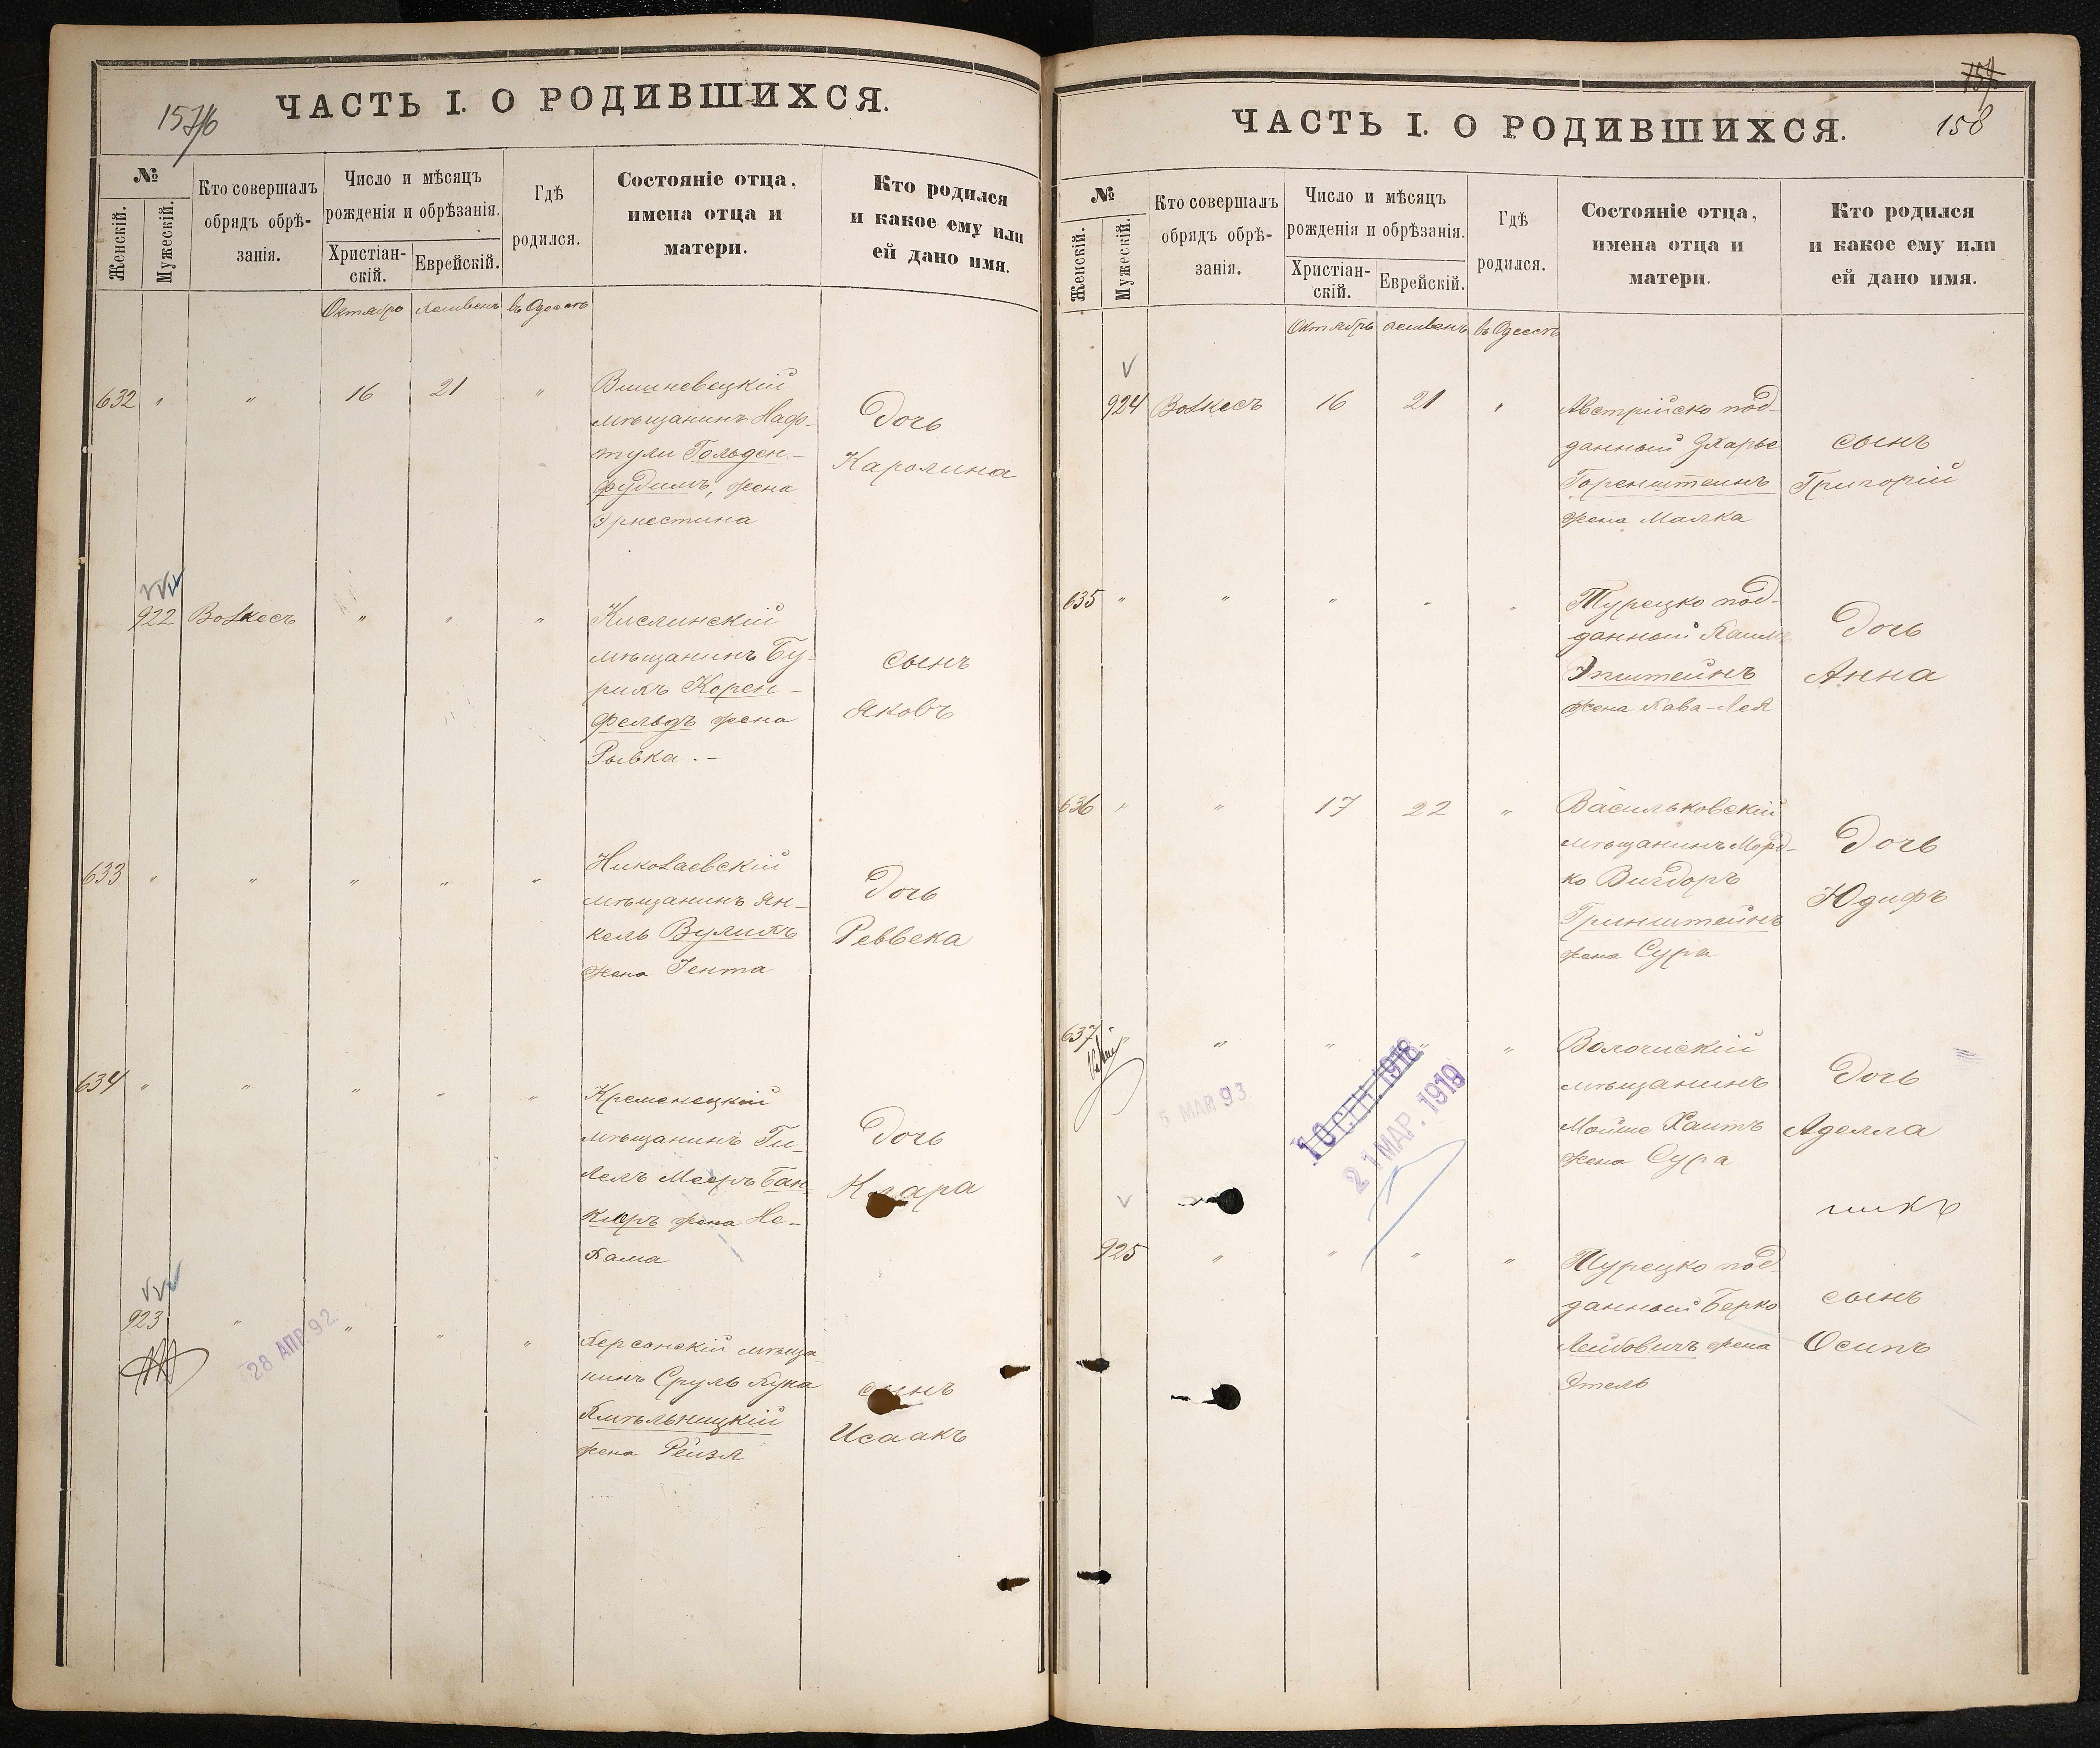 157/б
ЧАСТЬ I. О РОДИВШИХСЯ.
№
Женскій.
Мужескій.
Кто совершалъ
обрядъ обрѣ-
занія.
Число и мѣсяцъ
рожденія и обрѣзанія.
Христіан-
скій.
Еврейскій.
Гдѣ
родился.
Состояніе отца,
имена отца и
матери.
Кто родился
и какое ему или
ей дано имя.
Октябрь Хешвенъ въ Одессѣ
632 " " 16 21 "
Вишневецкій
мѣщанинъ Наф-
тули Гольден-
фудимъ, жена
Эрнестина
Дочь
Каролина
922 Волкесъ " " "
Кислинскій
мѣщанинъ Бу-
рихъ Корен-
фельдъ жена
Рывка . –
сынъ
Яковъ
633 " " " " "
Николаевскій
мѣщанинъ Ян-
кель Вулихъ
жена Гента
Дочь
Реввека
634 " " " " "
Кременецкій
мѣщанинъ Ги-
лель Мееръ Бан-
керъ жена Не-
хама
Дочь
Клара
923 " " " "
28 АПР 92.
Херсонскій мѣща
нинъ Сруль Хуна
Хмѣльницкій
жена Рейзя
сынъ
Исаакъ
157
158
ЧАСТЬ I. О РОДИВШИХСЯ.
№
Женскій.
Мужескій.
Кто совершалъ
обрядъ обрѣ-
занія.
Число и мѣсяцъ
рожденія и обрѣзанія.
Христіан-
скій.
Еврейскій.
Гдѣ
родился.
Состояніе отца,
имена отца и
матери.
Кто родился
и какое ему или
ей дано имя.
Октябрь Хешвенъ въ Одессѣ
924 Волкесъ 16 21 "
Австрійско под-
данный Зхарье
Горенштеинъ
жена Малка
сынъ
Григорій
635 " " " " "
Турецко под-
данный Хаимъ
Эпштейнъ
жена Хава-Лея
Дочь
Анна
636 " " 17 22 "
Васильковскій
мѣщанинъ Морд-
ко Вигдоръ
Гринштейнъ
жена Сура
Дочь
Юдифъ
637 " " " " "
5 МАЙ 93
10 СЕН. 1918
21 МАР. 1919
Волочискій
мѣщанинъ
Мойше Хаитъ
жена Сура
Дочь
Аделла
никъ
925 " " " "
Турецко под
данный Берко
Лейбовичъ жена
Этель
сынъ
Осипъ